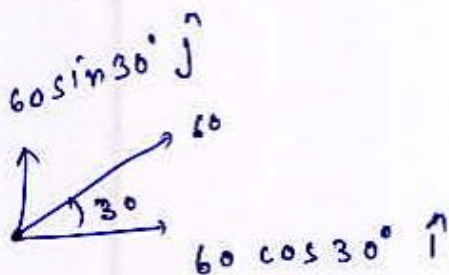 60 sin 30° ĵ
60
30
60 cos 30° î